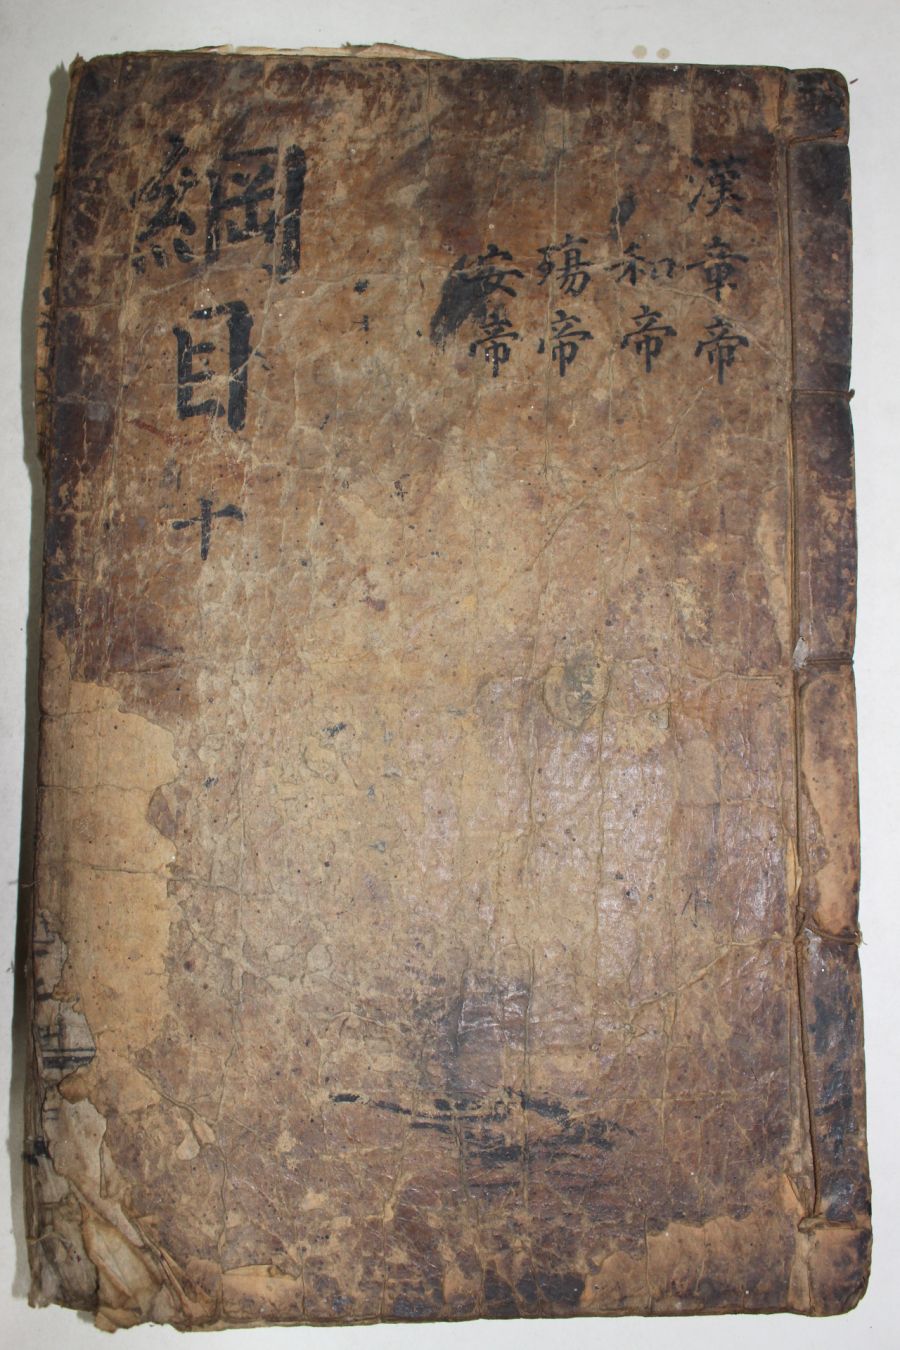 漢章帝
和帝
殤帝
安帝
綱目
十